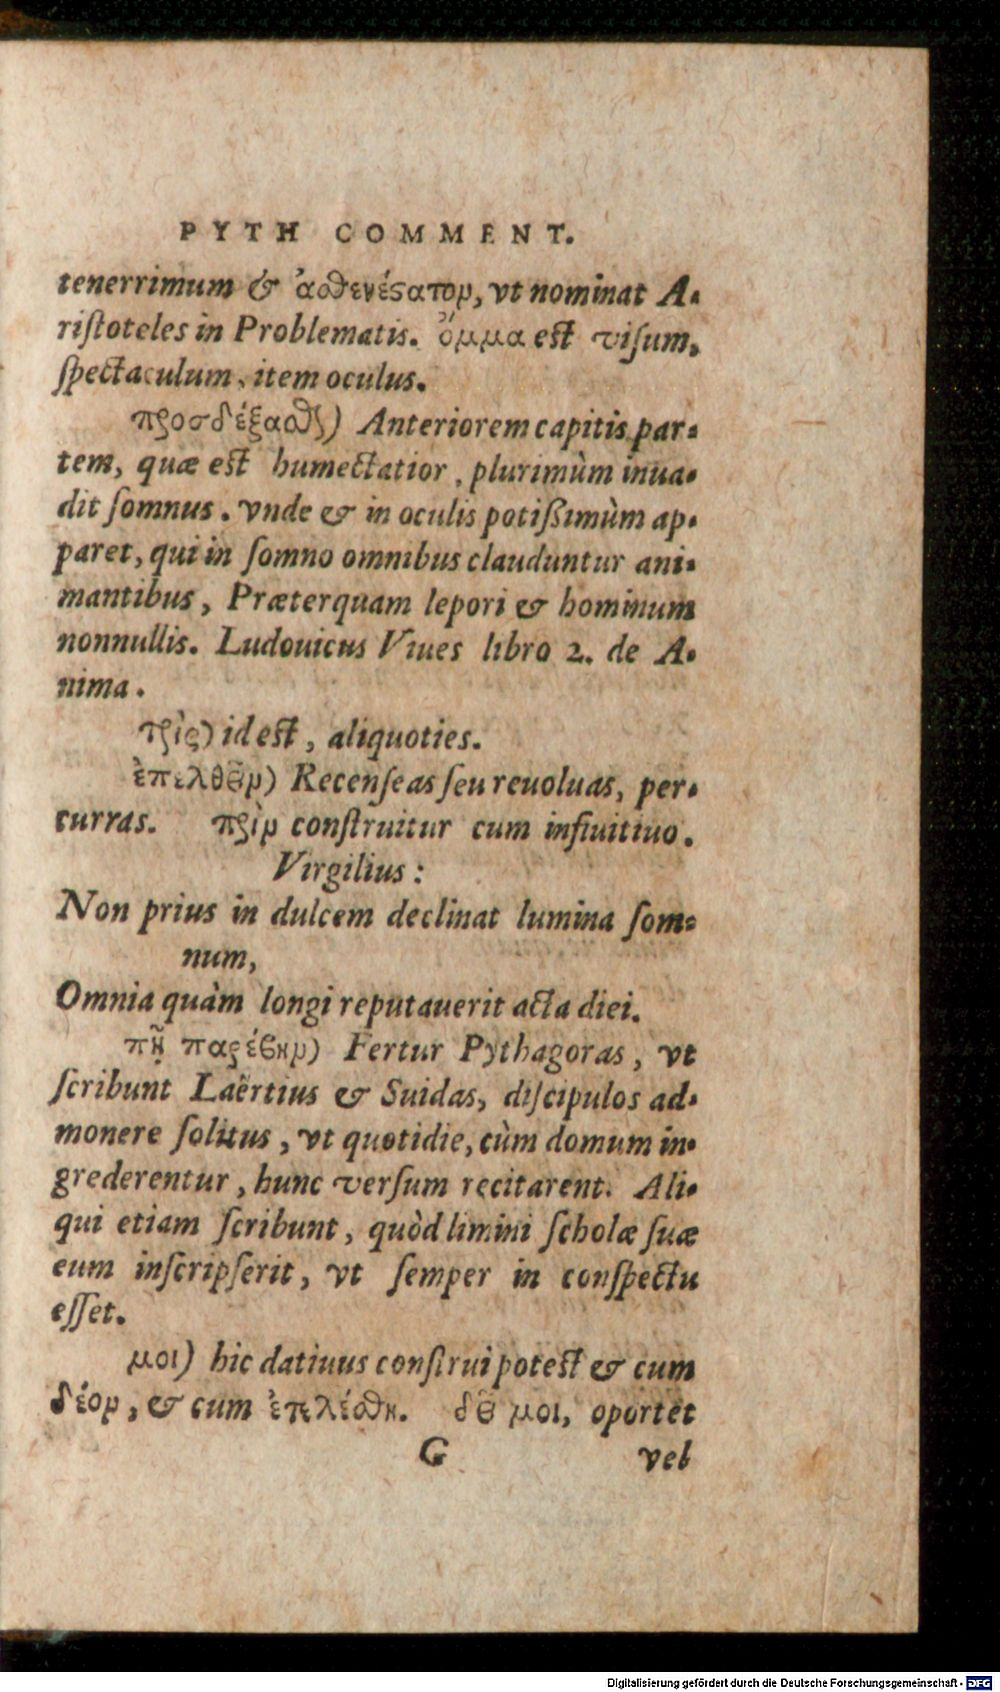 PYTH COMMENT.
tenerrimum & ἀσθενέστατον, vt nominat A-
riſtoteles in Problematis. ὄμμα est viſum,
ſpectaculum, item oculus.
προσδέξασθαι) Anteriorem capitis par-
tem, quæ est humectatior, plurimùm inua-
dit ſomnus. vnde & in oculis potißimùm ap-
paret, qui in ſomno omnibus clauduntur ani-
mantibus, Præterquam lepori & hominum
nonnullis. Ludouicus Viues libro 2. de A-
nima.
τρὶς) id est, aliquoties.
ἐπελθεῖν) Recenſeas ſeu reuoluas, per-
curras. πρὶν conſtruitur cum infiuitiuo.
Virgilius:
Non prius in dulcem declinat lumina ſom-
num,
Omnia quàm longi reputauerit acta diei.
πῆ παρέβην) Fertur Pythagoras, vt
ſcribunt Laërtius & Suidas, diſcipulos ad-
monere ſolitus, vt quotidie, cùm domum in-
grederentur, hunc verſum recitarent. Ali-
qui etiam ſcribunt, quòd limini ſcholæ ſuæ
eum inſcripſerit, vt ſemper in conſpectu
eſſet.
μοι) hic datiuus conſtrui potest & cum
δέον, & cum ἐτελέσθη. δεῖ μοι, oportet
G vel
Digitalisierung gefördert durch die Deutsche Forschungsgemeinschaft - DFG